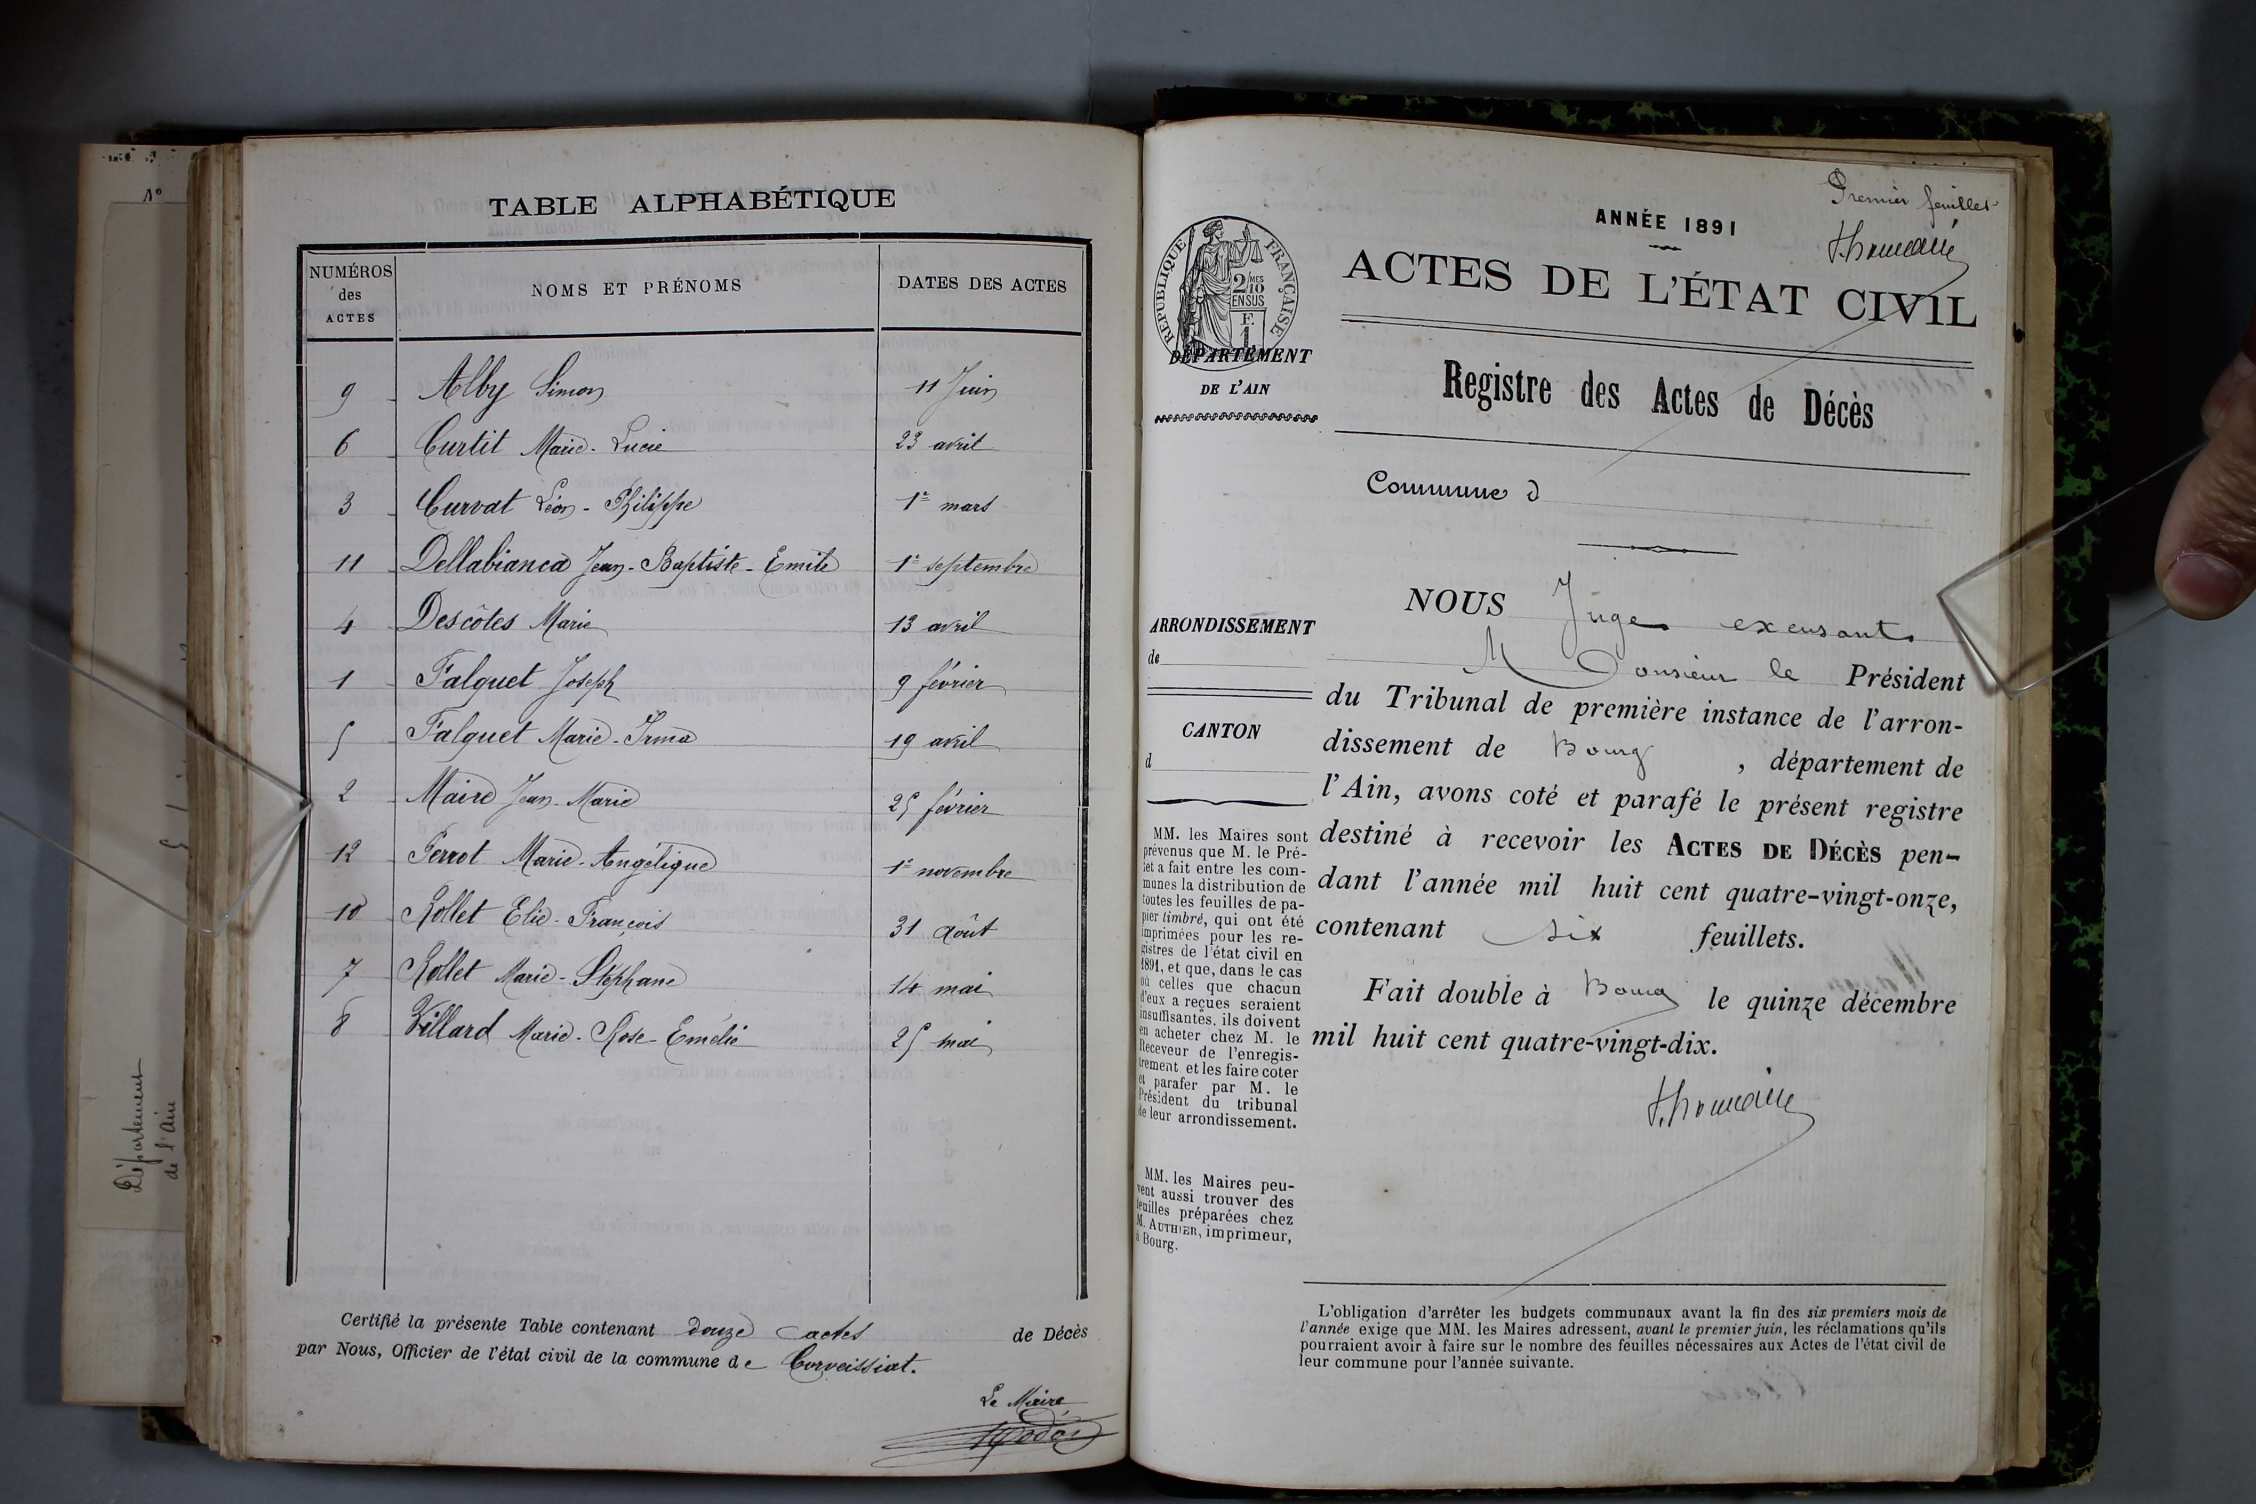 N°
Département
de l'Ain
TABLE ALPHABÉTIQUE
NUMÉROS des ACTES | NOMS ET PRÉNOMS | DATES DES ACTES
9 Alby Simon 11 Juin
6 Curtit Marie-Lucie 23 avril
3 Curvat Léon-Philippe 1er mars
11 Dellabianca Jean-Baptiste-Emile 1er septembre
4 Descôtes Marie 13 avril
1 Falquet Joseph 9 février
5 Falquet Marie-Irma 19 avril
2 Maire Jean-Marie 25 février
12 Perrot Marie-Angélique 1er novembre
10 Rollet Elie-François 31 août
7 Rollet Marie-Stéphane 14 mai
8 Villard Marie-Rose-Emélie 25 mai
Certifié la présente Table contenant douze actes de Décès
par Nous, Officier de l'état civil de la commune de Corveissiat.
Le Maire
Premier feuillet
ANNÉE 1891
RÉPUBLIQUE FRANÇAISE
2/10MES
EN SUS
F.
1
ACTES DE L'ÉTAT CIVIL
DÉPARTEMENT
DE L'AIN
Registre des Actes de Décès
Commune d
ARRONDISSEMENT
de
CANTON
d
MM. les Maires sont
prévenus que M. le Pré-
fet a fait entre les com-
munes la distribution de
toutes les feuilles de pa-
pier timbré, qui ont été
imprimées pour les re-
gistres de l'état civil en
1891, et que, dans le cas
où celles que chacun
d'eux a reçues seraient
insuffisantes, ils doivent
en acheter chez M. le
Receveur de l'enregis-
trement et les faire coter
et parafer par M. le
Président du tribunal
de leur arrondissement.
MM. les Maires peu-
vent aussi trouver des
feuilles préparées chez
M. AUTHIER, imprimeur,
à Bourg.
NOUS Juge excusant
Monsieur le Président
du Tribunal de première instance de l'arron-
dissement de Bourg, département de
l'Ain, avons coté et parafé le présent registre
destiné à recevoir les ACTES DE DÉCÈS pen-
dant l'année mil huit cent quatre-vingt-onze,
contenant six feuillets.
Fait double à Bourg le quinze décembre
mil huit cent quatre-vingt-dix.
L'obligation d'arrêter les budgets communaux avant la fin des six premiers mois de
l'année exige que MM. les Maires adressent, avant le premier juin, les réclamations qu'ils
pourraient avoir à faire sur le nombre des feuilles nécessaires aux Actes de l'état civil de
leur commune pour l'année suivante.